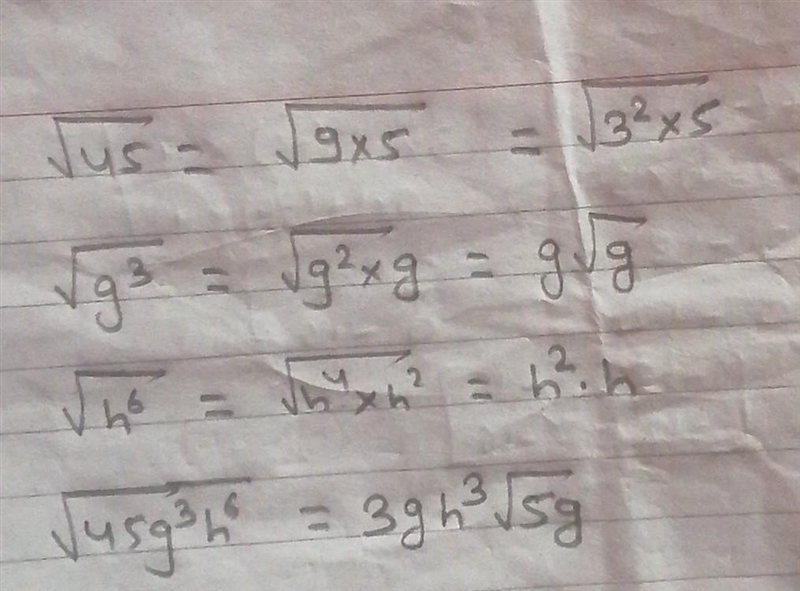 √45 = √9×5 = √3²×5
√g³ = √g²×g = g√g
√h⁶ = √h⁴×h² = h².h
√45g³h⁶ = 3gh³√5g